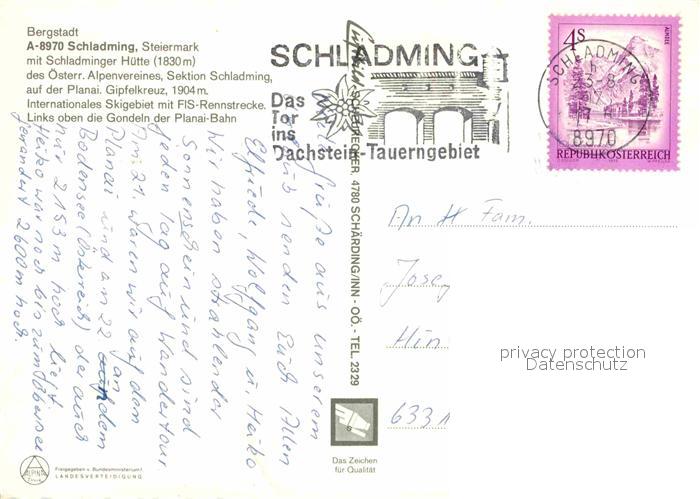 Bergstadt
A-8970 Schladming, Steiermark
mit Schladminger Hütte (1830 m)
des Österr. Alpenvereines, Sektion Schladming,
auf der Planai. Gipfelkreuz, 1904 m.
Internationales Skigebiet mit FIS-Rennstrecke.
Links oben die Gondeln der Planai-Bahn
SCHLADMING
Das
Tor
ins
Dachstein-Tauerngebiet
4 S
ALMSEE
REPUBLIK ÖSTERREICH
SCHLADMING
8970
SCHÖRDING/INN - OÖ. - TEL. 2329
Grüße aus unserem
senden Euch Allen
Elfriede, Wolfgang u. Heiko
Wir haben strahlenden
Sonnenschein und sind
jeden Tag auf Wandertour
Am 21. waren wir auf dem
Planai und am 22. an dem
Bodensee (Österreich) der auch
nur 2153 m hoch liegt
Heiko war noch bis zum
gewandert 2600 m hoch.
An H Fam.
Josef
Hin
633
privacy protection
Datenschutz
Das Zeichen
für Qualität
ALPINA
Freigegeben v. Bundesministerium f.
LANDESVERTEIDIGUNG